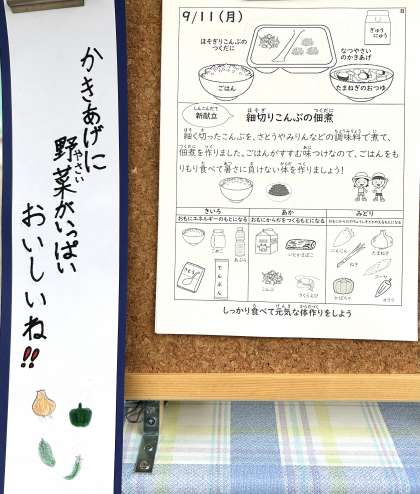 かきあげに
野菜がいっぱい
やさい
おいしいね!!
9/11(月)
ぎゅう
にゅう
ほそぎりこんぶの
つくだに
なつやさい
のかきあげ
ごはん
たまねぎのおつゆ
しんこんだて
新献立
細切りこんぶの佃煮
細く切ったこんぶを、さとうやみりんなどの調味料で煮て、
佃煮を作りました。ごはんがすすむ味つけなので、ごはんをも
りもり食べて暑さに負けない体を作りましょう!
きいろ
あか
みどり
おもにエネルギーのもとになる
おもにからだをつくるもとになる
こめ
あぶら
でんぷん
いとかまぼこ
こんぶ
さくらえび
にんじん
たまねぎ
ねぎ
かぼちゃ
ゴーヤ
オクラ
しっかり食べて元気な体作りをしよう